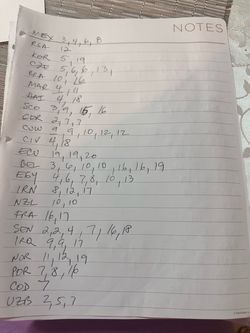 NOTES
MEX 2, 4, 6, 8
RSA 12
KOR 5, 19
CZE 5, 6, 8, 13,
BRA 10, 16
MAR 4, 11
HAI 4, 18
SCO 3, 9, 15, 16
GER 2, 7, 7
CUW 9, 9, 10, 12, 12
CIV 4, 18
ECU 19, 19, 20
BEL 3, 6, 10, 10, 16, 16, 19
EGY 4, 6, 7, 8, 10, 13
IRN 8, 12, 17
NZL 10, 10
FRA 16, 17
SEN 2, 2, 4, 7, 16, 18
IRQ 9, 9, 17
NOR 11, 12, 19
POR 7, 8, 16
COD 7
UZB 2, 5, 7